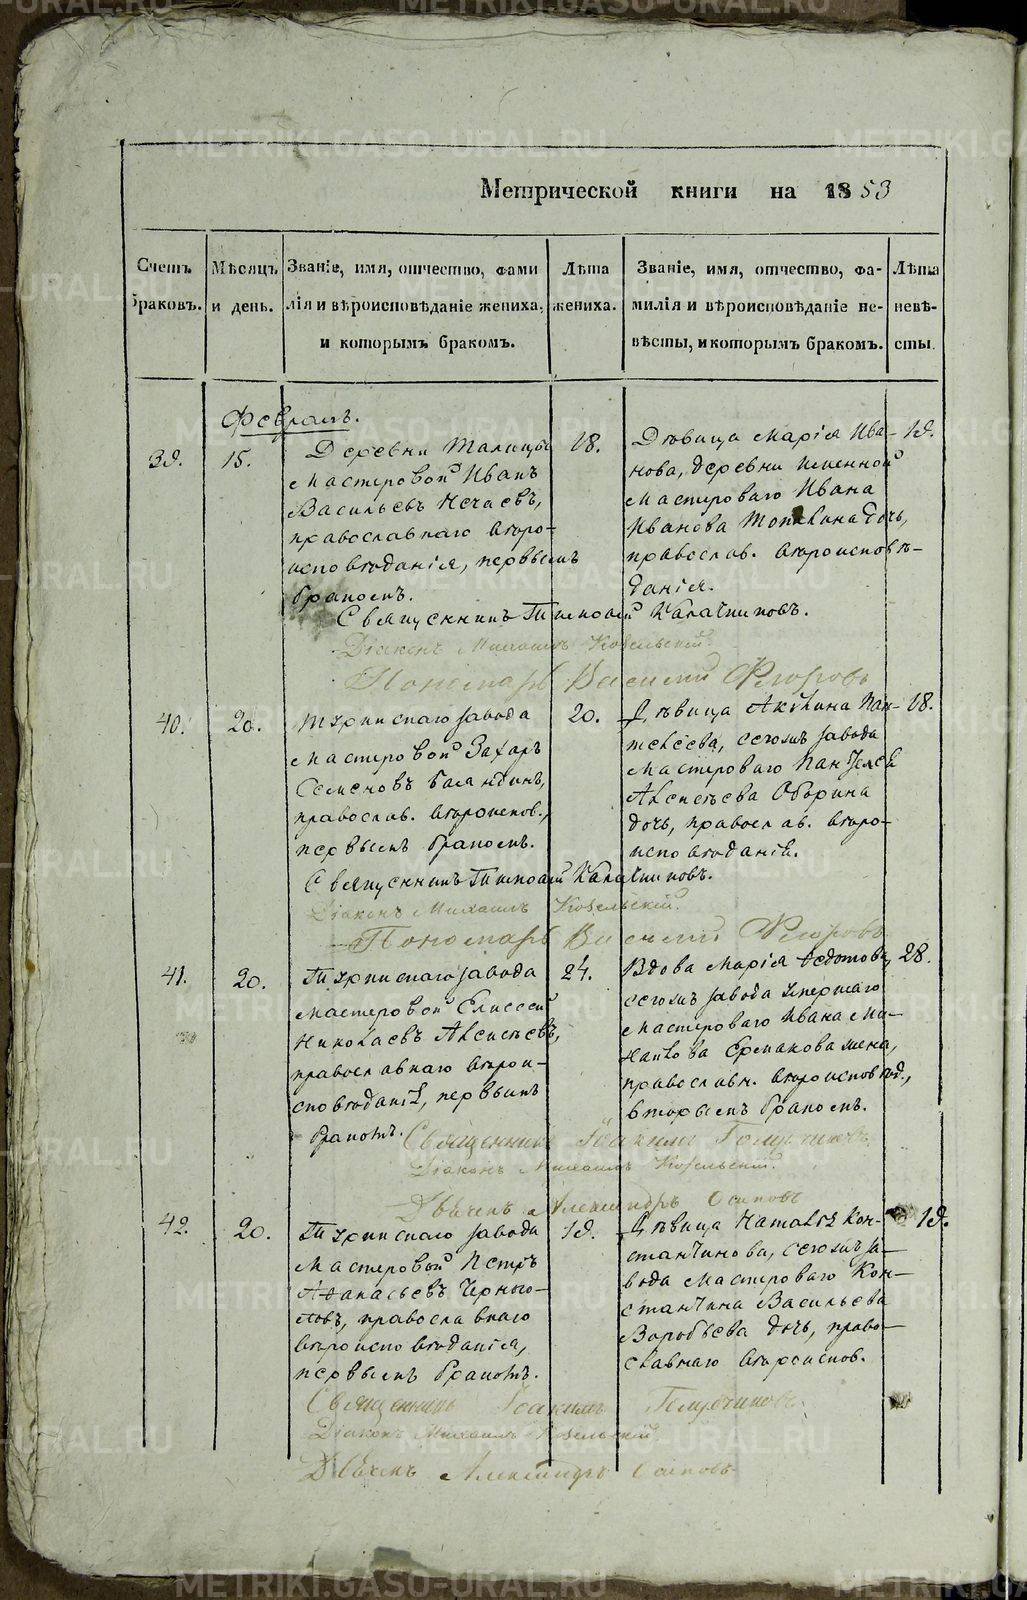 Метрической книги на 1853
Счетъ браковъ.
Мѣсяцъ и день.
Званіе, имя, отчество, фами
лія и вѣроисповѣданіе жениха,
и которымъ бракомъ.
Лѣта жениха.
Званіе, имя, отчество, фа-
милія и вѣроисповѣданіе не-
вѣсты, и которымъ бракомъ.
Лѣта невѣ-
сты.
Февраль.
39.
15.
Деревни Талицы
мастеровой Иванъ
Васильевъ Нечаевъ,
православнаго вѣро-
исповѣданія, первымъ
бракомъ.
18.
Дѣвица Марія Ива-
нова, деревни
мастероваго Ивана
Иванова дочь,
православ. вѣроисповѣ-
данія.
19.
Священникъ Тимофей Калашниковъ.
Діаконъ Михаилъ Козельскій.
Пономарь Василій Флоровъ
40.
20.
завода
мастеровой Захаръ
Семеновъ Баландинъ,
православ. вѣроиспов.,
первымъ бракомъ.
20.
Дѣвица Акилина Пан-
телеева, сегожъ завода
мастероваго Пантелея
Алексѣева Оборина
дочь, православ. вѣро-
исповѣданія.
18.
Священникъ Тимофей Калашниковъ.
Діаконъ Михаилъ Козельскій.
Пономарь Василій Флоровъ
41.
20.
завода
мастеровой Елисей
Николаевъ Алексѣевъ,
православнаго вѣрои-
сповѣданія, первымъ
бракомъ.
24.
Вдова Марія Ѳедотова,
сегожъ завода умершаго
мастероваго Ивана Ми-
хайлова Ермакова жена,
православн. вѣроисповѣд.,
вторымъ бракомъ.
28.
Священникъ Іоакимъ
Діаконъ Михаилъ Козельскій.
Дьячекъ Александръ Осиповъ
42.
20.
завода
мастеровый Петръ
Аѳанасьевъ Черного-
ловъ, православнаго
вѣроисповѣданія,
первымъ бракомъ.
19.
Дѣвица Наталія Кон-
стантинова, сегожъ за-
вода мастероваго Кон-
стантина Васильева
Воробьева дочь, право-
славнаго вѣроиспов.
19.
Священникъ Іоакимъ
Діаконъ Михаилъ Козельскій.
Дьячекъ Александръ Осиповъ
METRIKI.GASO-URAL.RU